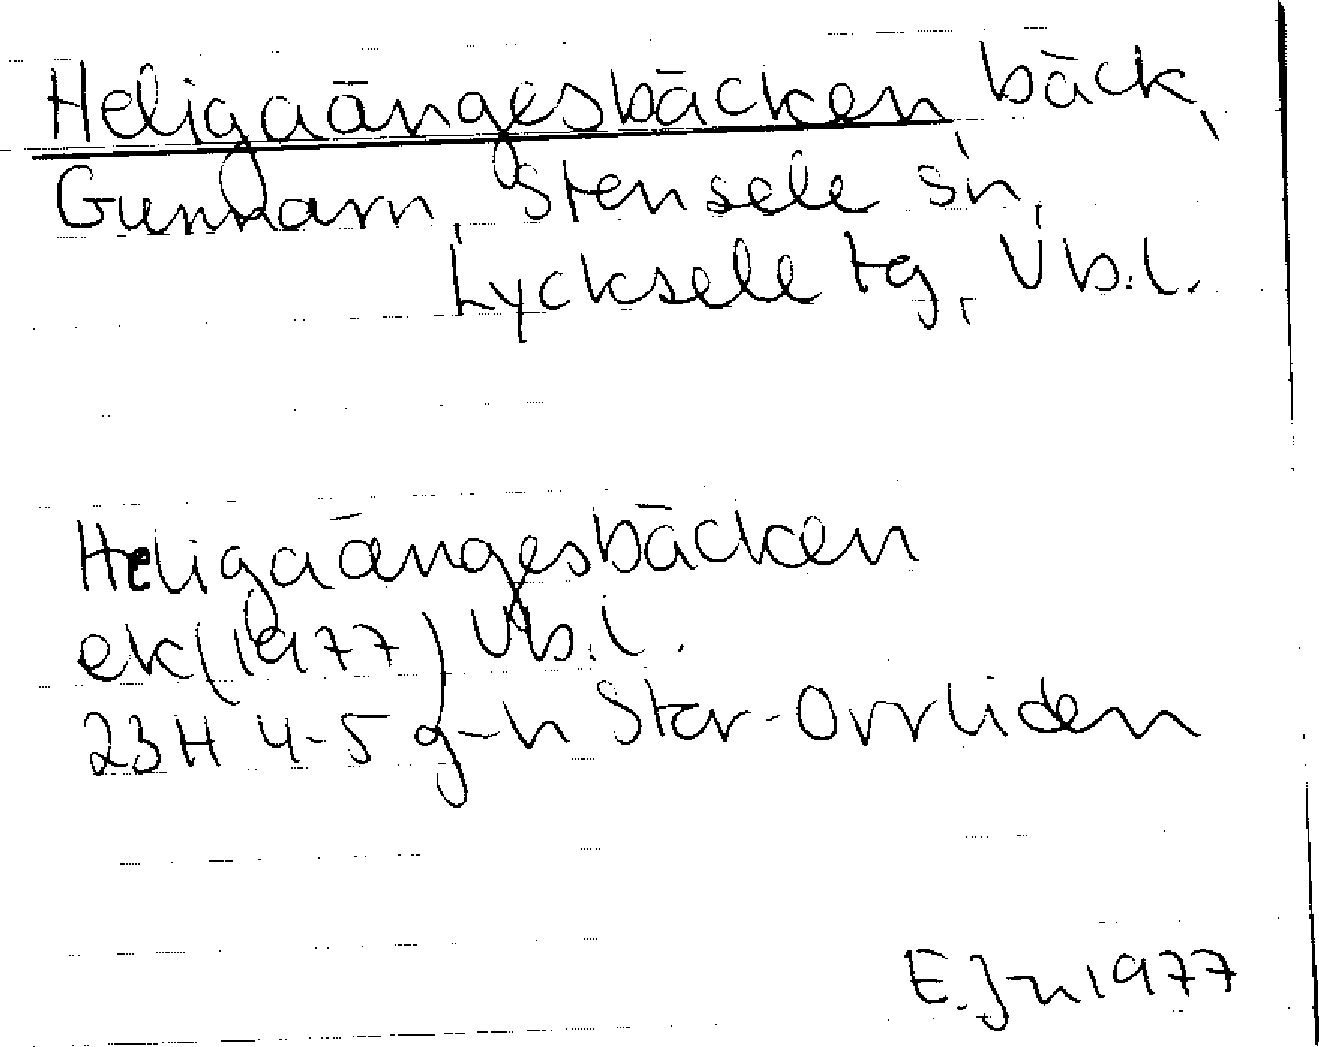 Heligaängesbäcken, bäck,
Gunnarn, Stensele sn,
Lycksele tg, Vb.l.
Heligaängesbäcken
ek(1977) Vb.l.
23H 4-5 g-h Stor-Orrliden
E.Jn 1977